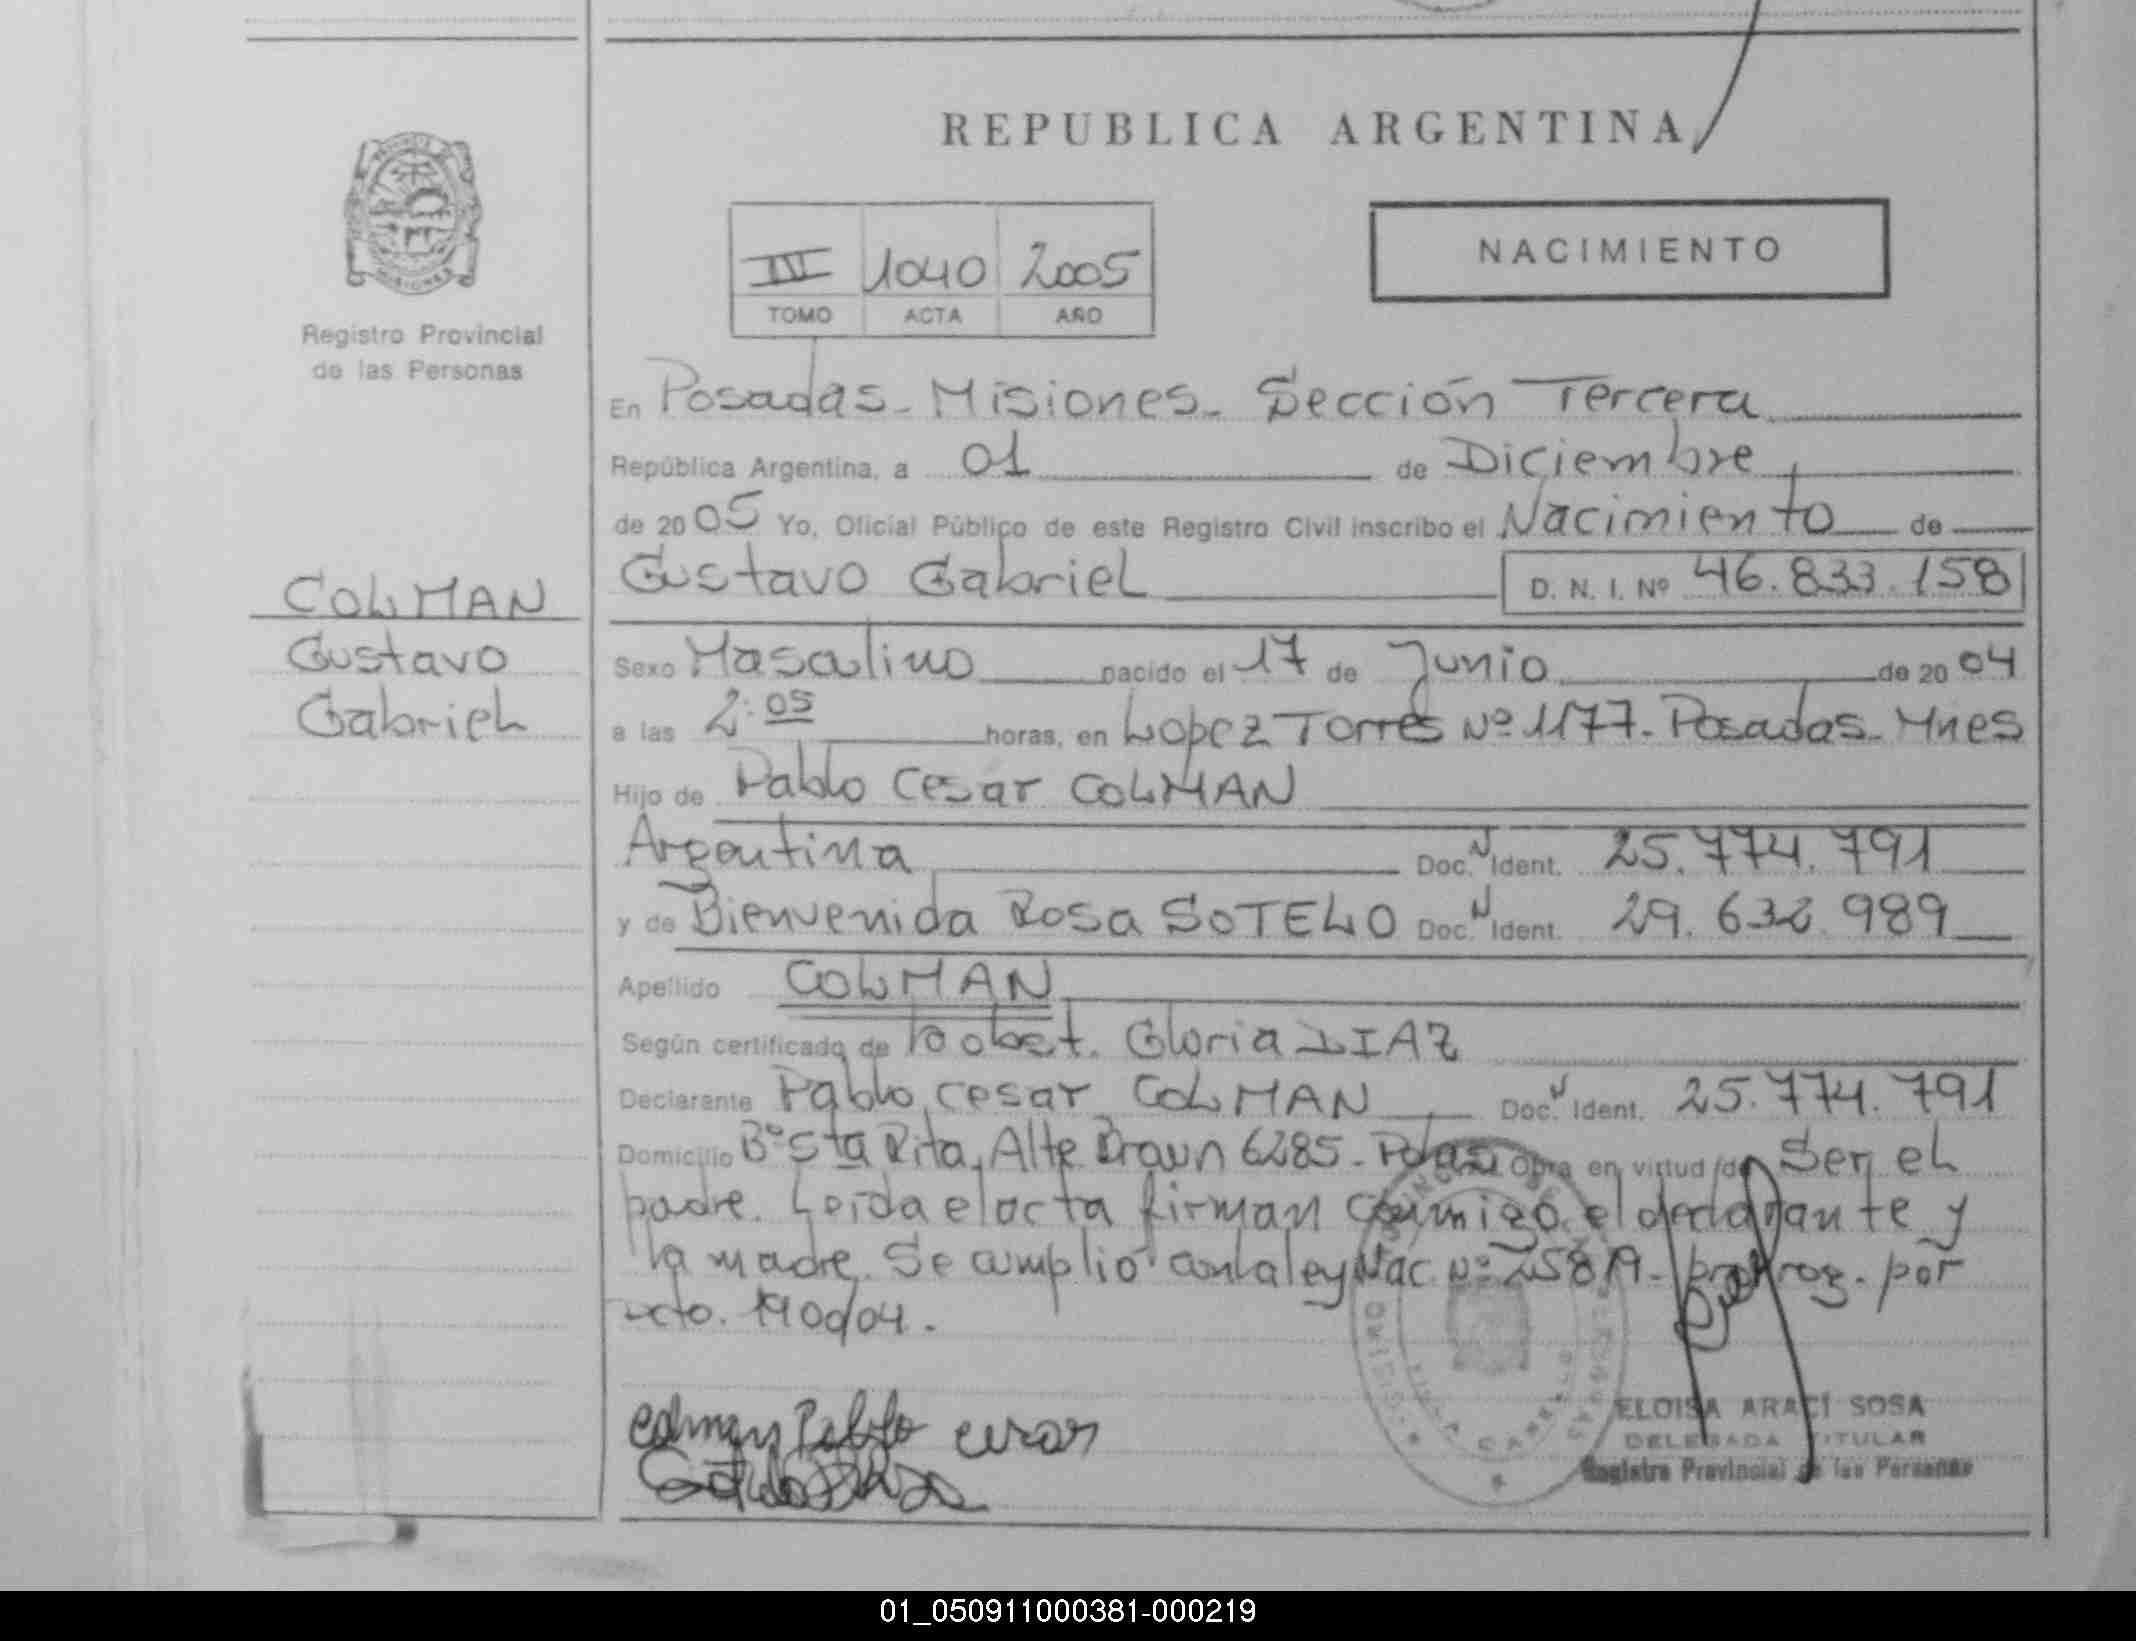 REPUBLICA ARGENTINA
NACIMIENTO
1040 2005
TOMO ACTA AÑO
Registro Provincial
de las Personas
En Posadas - Misiones - Sección Tercera
República Argentina, a 01 de Diciembre
de 2005 Yo, Oficial Público de este Registro Civil inscribo el Nacimiento de
Gustavo Gabriel D. N. I. Nº 46.833.158
COLMAN
Gustavo
Gabriel
Sexo Masculino nacido el 17 de Junio de 2004
a las 2:05 horas, en Lopez Torres Nº 1177 - Posadas - Mnes
Hijo de Pablo Cesar COLMAN
Argentina Doc. N Ident. 25.774.791
y de Bienvenida Rosa SOTELO Doc. N Ident. 29.632.989
Apellido COLMAN
Según certificado de obst. Gloria DIAZ
Declarante Pablo Cesar COLMAN Doc. N Ident. 25.774.791
Domicilio Bº Sta Rita, Alte Brown 6285 - Pdas Obra en virtud de Ser el
padre. Leída el acta firman conmigo el declarante y
la madre. Se cumplió con la ley Nac. Nº 25819 - prorrog. por
dcto. 1900/04.
Colman Pablo cesar
ELOISA ARACÍ SOSA
DELEGADA TITULAR
Registro Provincial de las Personas
01_050911000381-000219